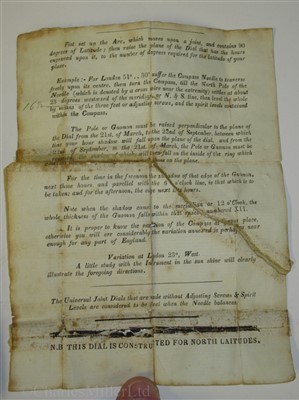 First set up the Arc, which moves upon a joint, and contains 90
degrees of Latitude; then raise the plane of the Dial that has the hours
engraved upon it, to the number of degrees required for the latitude of your
place.
Example:—For London 51°.. 30' suffer the Compass Needle to traverse
freely upon its centre, then turn the Compass, till the North Pole of the
Needle (which is denoted by a cross wire near the extremity) settles at about
23 degrees westward of the meridian or N. & S. line, then level the whole
by means of the three feet or adjusting screws, and the spirit levels contained
within the Compass.
The Pole or Gnomon must be raised perpendicular to the plane of
the Dial from the 21st. of March, to the 22nd of September, between which
time your hour shadow will fall upon the plane of the dial, and from the
22nd of September, to the 21st of March, the Pole or Gnomon must be
fall on the inside of the ring which
on the plane.
For the time in the forenoon the shadow of that edge of the Gnomon,
next those hours and parallel with the 6 o'clock line, is that which is to
be taken; and for the afternoon, the edge next hours.
Now when the shadow comes to the meridian or 12 o'Clock, the
whole thickness of the Gnomon falls within that space numbered XII.
It is proper to know the variation of the Compass at your place,
otherwise you will err considerably the variation annexed is perhaps near
enough for any part of England.
Variation at London 23°, West.
A little study with the Instrument in the sun shine will clearly
illustrate the foregoing directions.
The Universal Joint Dials that are made without Adjusting Screws & Spirit
Levels are considered to be level when the Needle balances
N.B THIS DIAL IS CONSTRUCTED FOR NORTH LATITUDES.